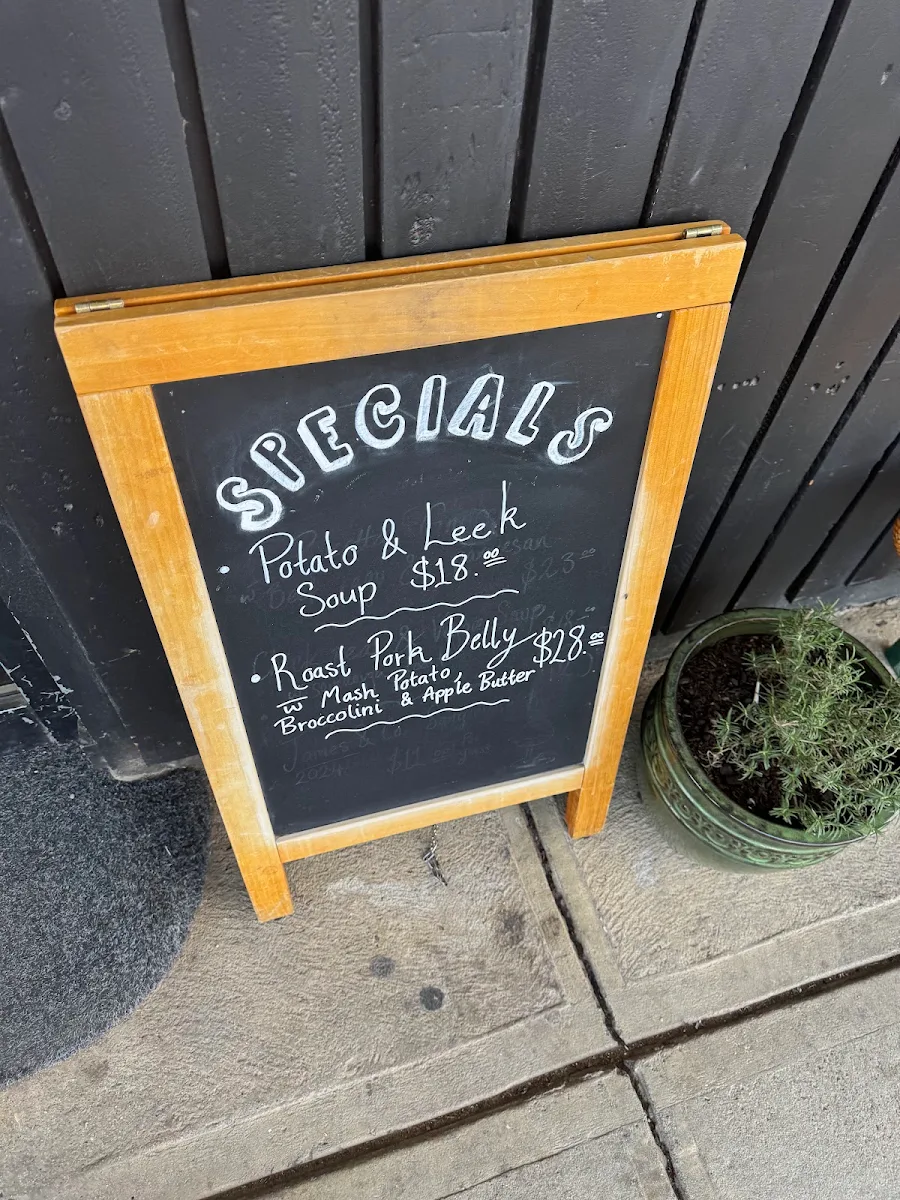 SPECIALS
• Potato & Leek
Soup $18.00
• Roast Pork Belly $28.00
w̅ Mash Potato,
Broccolini & Apple Butter